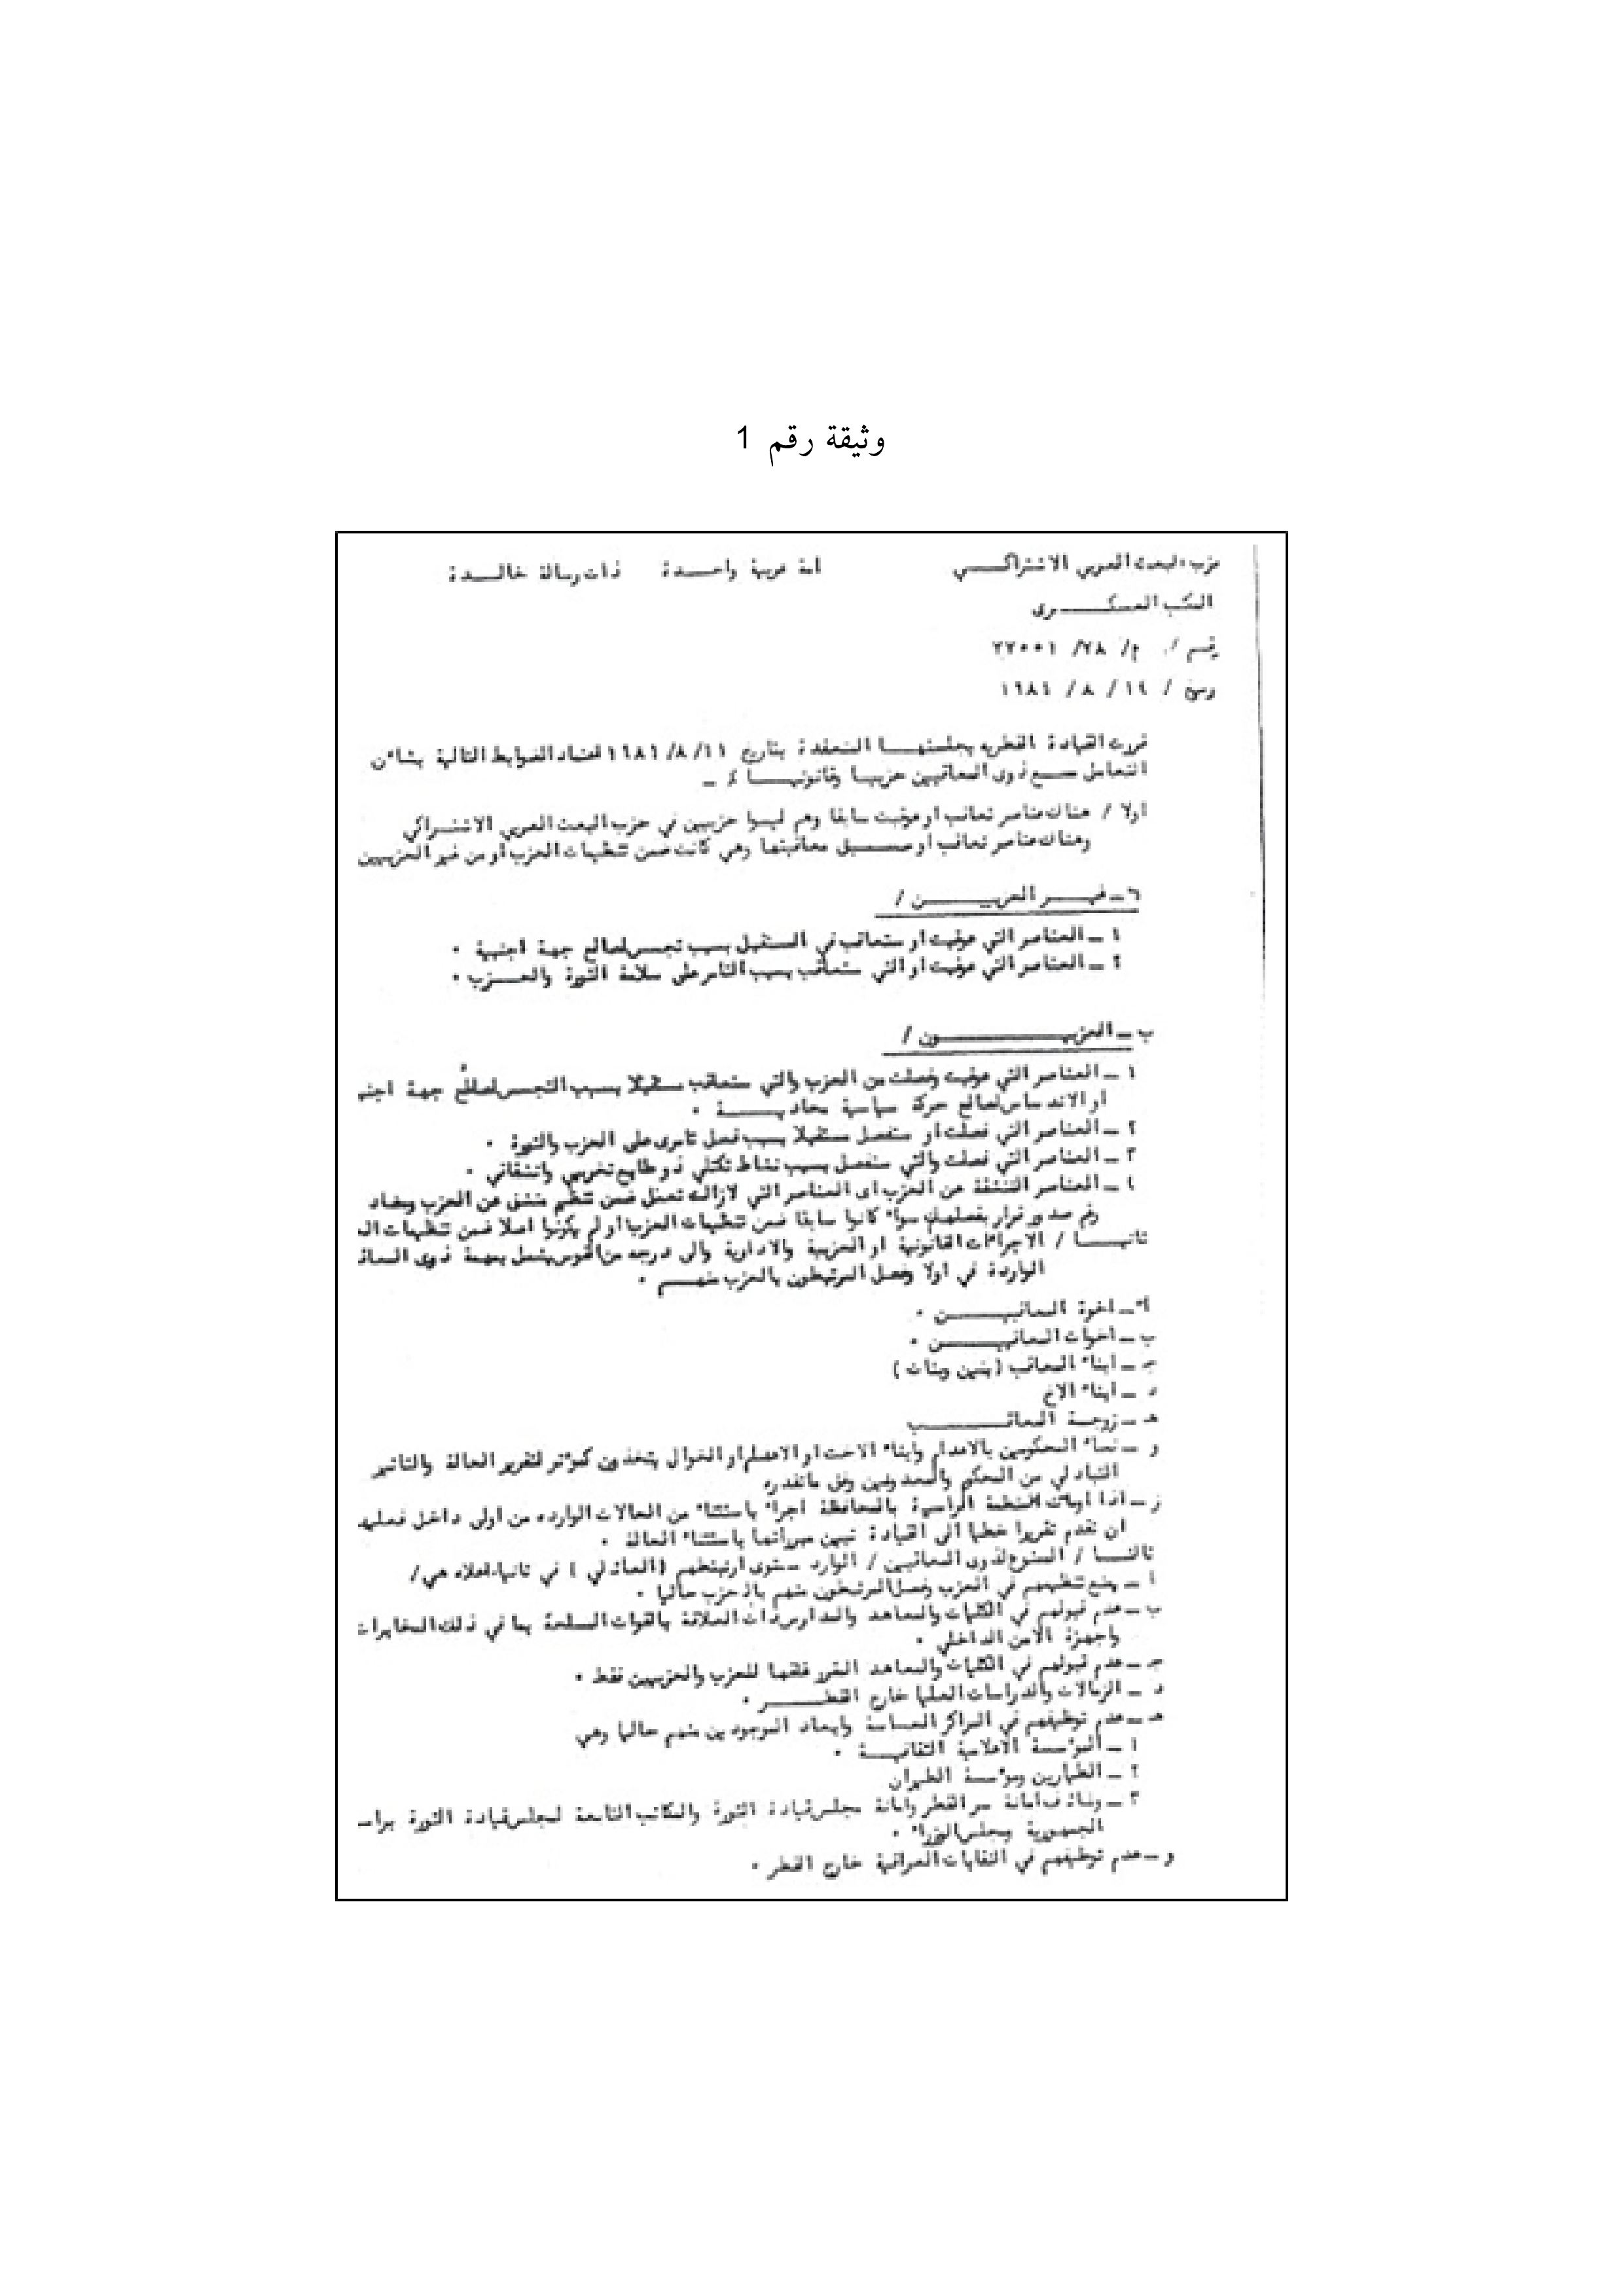 وثيقة رقم 1
حزب البعث العربي الاشتراكـــي امة عربية واحــــدة ذات رسالة خالـــدة
المكتب العسكــــــرى
رقم / م/ ٧٨/
١٩ / ٨ /
قررت القيادة القطريه بجلستهـــا المنعقدة بتاريخ ١١ /٨/ الضوابط التالية بشاٴن
التعامل مـــع ذوى المعاقبين حزبيا وقانونيـــا
اولا / هناك عناصر تعاقب او عوقبت سابقا وهم ليسوا حزبيين في حزب البعث العربي الاشتــراكي
وهناك عناصر تعاقب او معاقبتها وهي كانت ضمن تنظيمات الحزب او من غير الحزبيين
غيـــر الحزبييـــــن /
١ ــ العناصر التي عوقبت او ستعاقب في المستقبل بسبب تجسس لصالح جهة اجنبية .
٢ ــ العناصر التي عوقبت او التي ستعاقب بسبب التامر على سلامة الثورة والحـــزب .
ب ــ الحزبيــــــــــون /
١ ــ العناصر التي عوقبت وفصلت من الحزب والتي ستعاقب مستقبلا بسبب التجسس لصالح جهة
او الاندساس لصالح حركة سياسية معاديـــــة .
٢ ــ العناصر التي فصلت او ستفصل مستقبلا بسبب فعل تامرى على الحزب والثورة .
٣ ــ العناصر التي فصلت والتي ستفصل بسبب نشاط تكتلي ذو طابع تخريبي وانشقاقي .
٤ ــ العناصر المنشقة عن الحزب اى العناصر التي لازالت تعمل ضمن تنظيم منشق عن الحزب
رغم صدور قرار بفصلهم سواء كانوا سابقا ضمن تنظيمات الحزب او لم يكونوا اصلا ضمن تنظيمات
ثانيـــا / الاجراءات القانونية او الحزبية والادارية والى درجه من ذوى
الواردة في اولا وفصل المرتبطون بالحزب منهـــم .
أ ــ اخوة المعاقبيــــن .
ب ــ اخوات المعاقبيــــن .
جـ ــ ابناء المعاقب (بنين وبنات )
د ــ ابناء الاخ
هـ ــ زوجـة المعاقـــــب
و ــ نساء المحكومين بالاعدام وابناء الاخت او الاعمام او الخوال يتخذون كمؤثر لتقرير الحالة والتاثير
التبادلي من
ز ــ اذا المنظمة بالمحافظة اجراء باستثناء من الحالات الوارده من اولى داخل فعليها
ان تقدم تقريرا خطيا الى القيادة تبين مبرراتها باستثناء الحالة .
ثالثـــا / الممنوع لذوى المعاقبين / الوارد مستوى ارتباطهم (العائلي ) في ثانيا اعلاه هي /
أ ــ يمنع تنظيمهم في الحزب وفصل المرتبطون منهم بالحزب حاليا .
ب ــ عدم قبولهم في الكليات والمعاهد والمدارس ذات العلاقة بالقوات المسلحة بما في ذلك المخابرات
واجهزة الامن الداخلي .
جـ ــ عدم قبولهم في الكليات والمعاهد المقرر غلقها للحزب والحزبيين فقط .
د ــ الزمالات والدراسات العليا خارج القطـــــر .
هـ ــ عدم توظيفهم في المراكز الحساسة وابعاد الموجودين منهم حاليا وهي
١ ــ المؤسسة الاعلامية الثقافيـــة .
٢ ــ الطيارين ومؤسسة الطيران
٣ ــ وظائف امانة سر القطر وامانة مجلس قيادة الثورة والمكاتب التابعة لمجلس قيادة الثورة
الجمهورية ومجلس الوزراء .
و ــ عدم توظيفهم في النقابات العراقية خارج القطر .